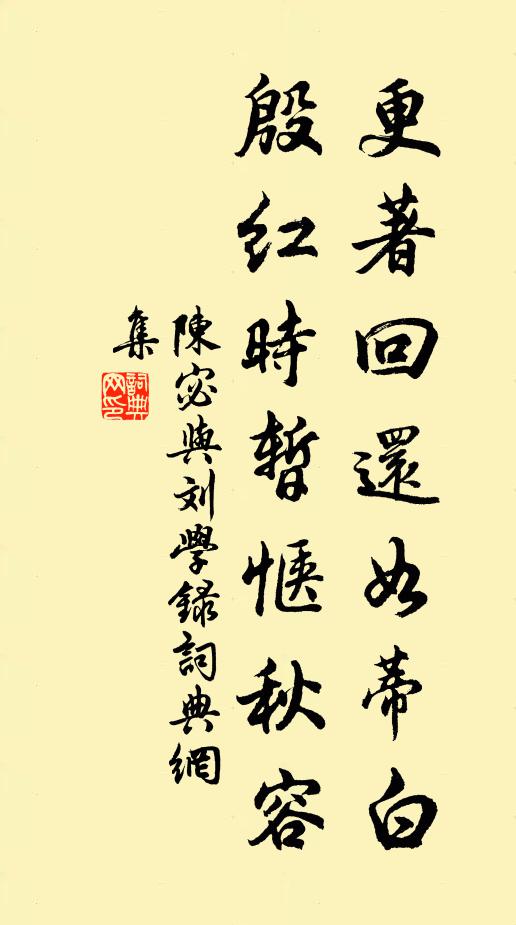 更著回還如蒂白
殷紅時暫愜秋容
陳宓與刘學錄詞典網
集
詞典
网印